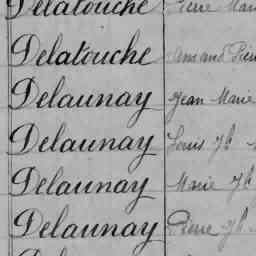 Delatouche Pierre Mari
Delatouche Armand Pierr
Delaunay Jean Marie
Delaunay Louis Jh
Delaunay Marie Jh
Delaunay Pierre Jh